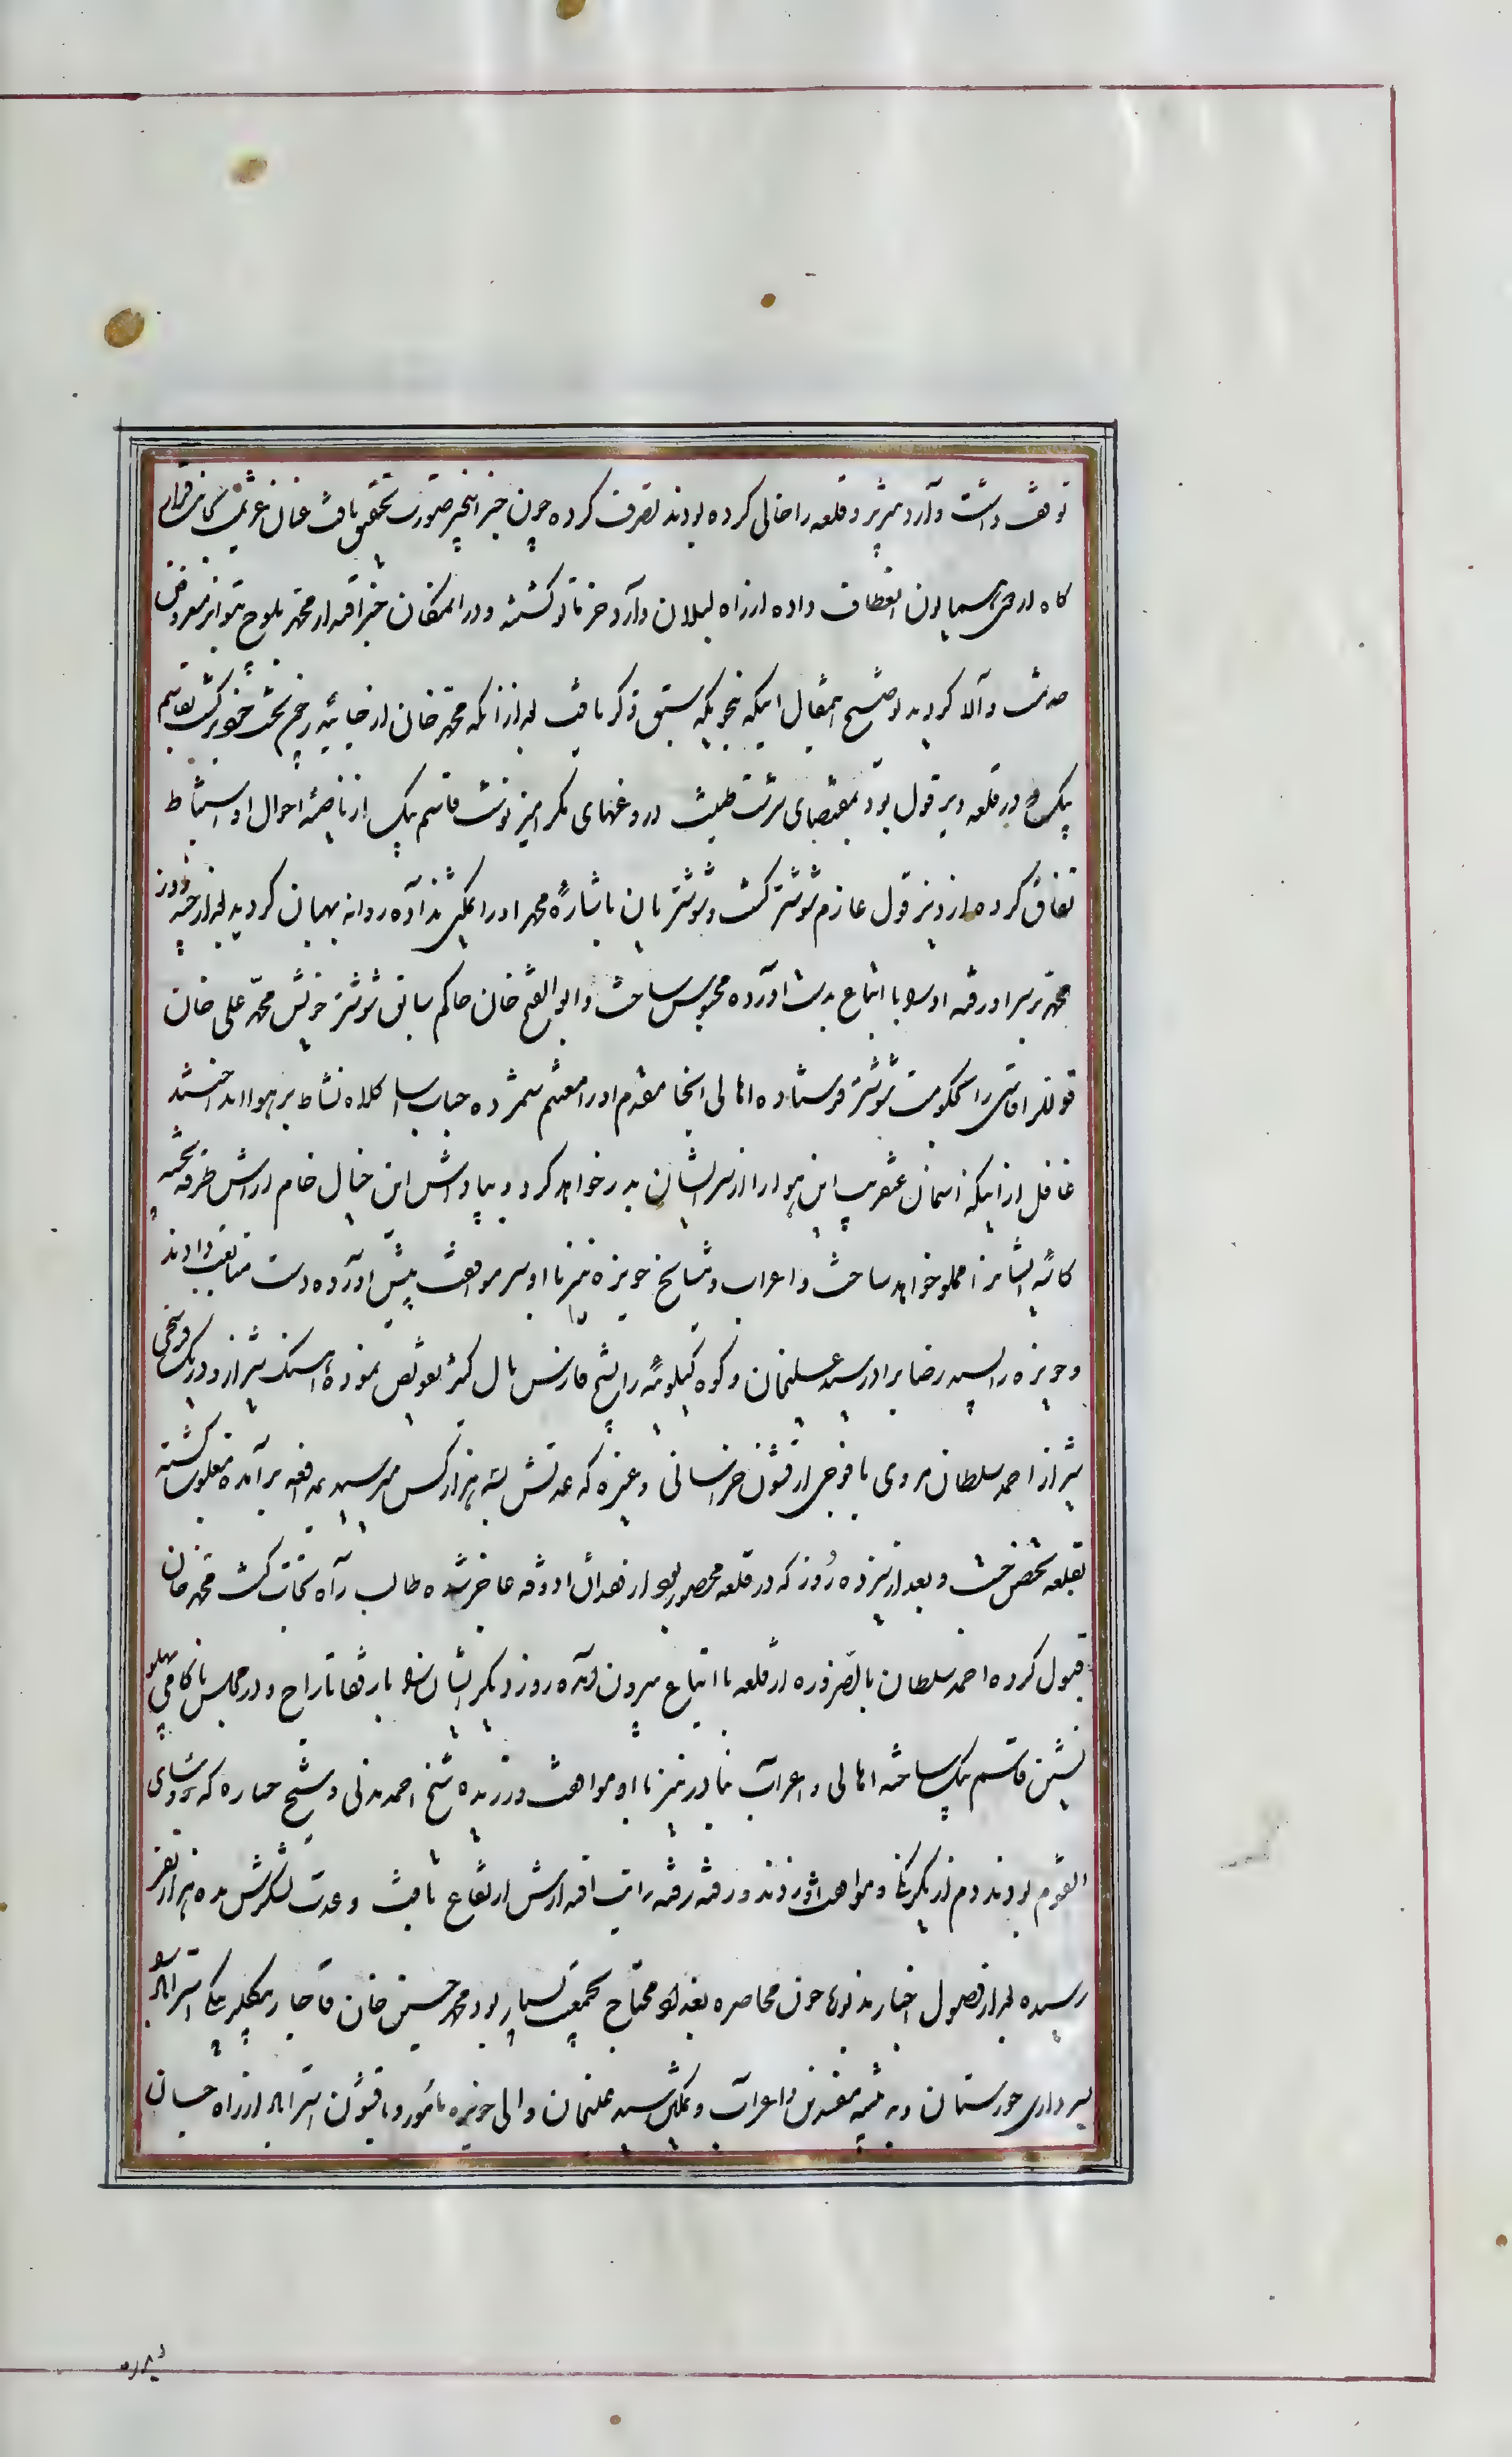 توقف داشت وارد تبریز و قلعه را خالی کرده بودند تصرف کرده چون خبر اینخبر صورت تحقیق یافت عنان عزیمت بجانب قرار
کاه اردوی همایون انعطاف داده از راه لیلان وارد خرماتو گشته و در آنمکان خبر اقتدار محمد بلوچ بتواتر معروض
خدمت والا گردید توضیح اینمقال اینکه بنحویکه سبق ذکر یافت بعد از آنکه محمد خان از خانیه رخم بخت خود برگشت بقاسم
بیک در قلعه دیزفول بود بمقتضای سرشت طبیعت دروغهای مکرآمیز نوشت قاسم بیک از ناصیهٔ احوال او استنباط
نفاق کرده از دیزفول عازم شوشتر گشت و شوشتریان باشارهٔ محمد او را تمکین نداده روانه بهبهان گردید بعد از چند روز
محمد بر سر او رفته او را با اتباع بدست آورده محبوس ساخت و ابوالفتح خان حاکم سابق شوشتر خویش محمد علی خان
قوللر اقاسی را بحکومت شوشتر فرستاده اهالی آنجا مقدم او را مغتنم شمرده حباب آسا کلاه نشاط بر هوا انداختند
غافل از اینکه آسمان عنقریب این هوا را از سر ایشان بدر خواهد کرد و بپاداش این خیال خام اراش طرفه پخته
کاسهٔ ایشانرا مملو خواهد ساخت و اعراب و مشایخ حویزه نیز با او سر موافقت پیش آورده دست متابعت دادند
و حویزه را بسید رضا برادر سید علیخان و کوه کیلویه را بشیخ فارس آل کثیر تفویض نموده آهنگ شیراز و در یک فرسخی
شیراز احمد سلطان مروی با فوجی از قشون خراسانی و غیره که عدتش بسه هزار کس میرسید بمدافعه برآمده مغلوب گشته
بقلعه تحصن جست و بعد از سیزده روز که در قلعه محصور بود از فقدان آذوقه عاجز شده طالب راه نجات گشت محمد خان
قبول کرده احمد سلطان بالضروره از قلعه با اتباع بیرون آمده روز دیگر ایشانرا با رفقا تاراج و در مجلس ناکامی پهلو
نشین قاسم بیک ساخته اهالی و اعراب بنادر نیز با او موافقت ورزیده شیخ احمد مدنی و شیخ جباره که رؤسای
القوم بودند دم از یکرنگی و موافقت او زدند و رفته رفته رایت اقتدارش ارتفاع یافت و عدت لشکرش بده هزار نفر
رسیده بعد از وصول اخبار مذکوره چون محاصره بغداد محتاج بجمعیت بسیار نبود محمد حسین خان قاجار بیکلربیکی استراباد را
بسرداری خوزستان و تنبیه مفسدین و اعراب و تمکین سید علیخان والی حویزه مامور و با قشون استراباد از راه حسان